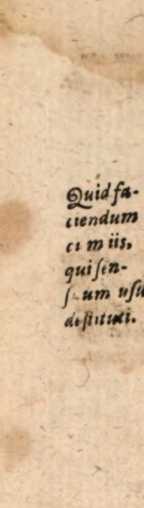 Quid fa-
ciendum
cum iis,
qui sen-
suum usu
destituti.